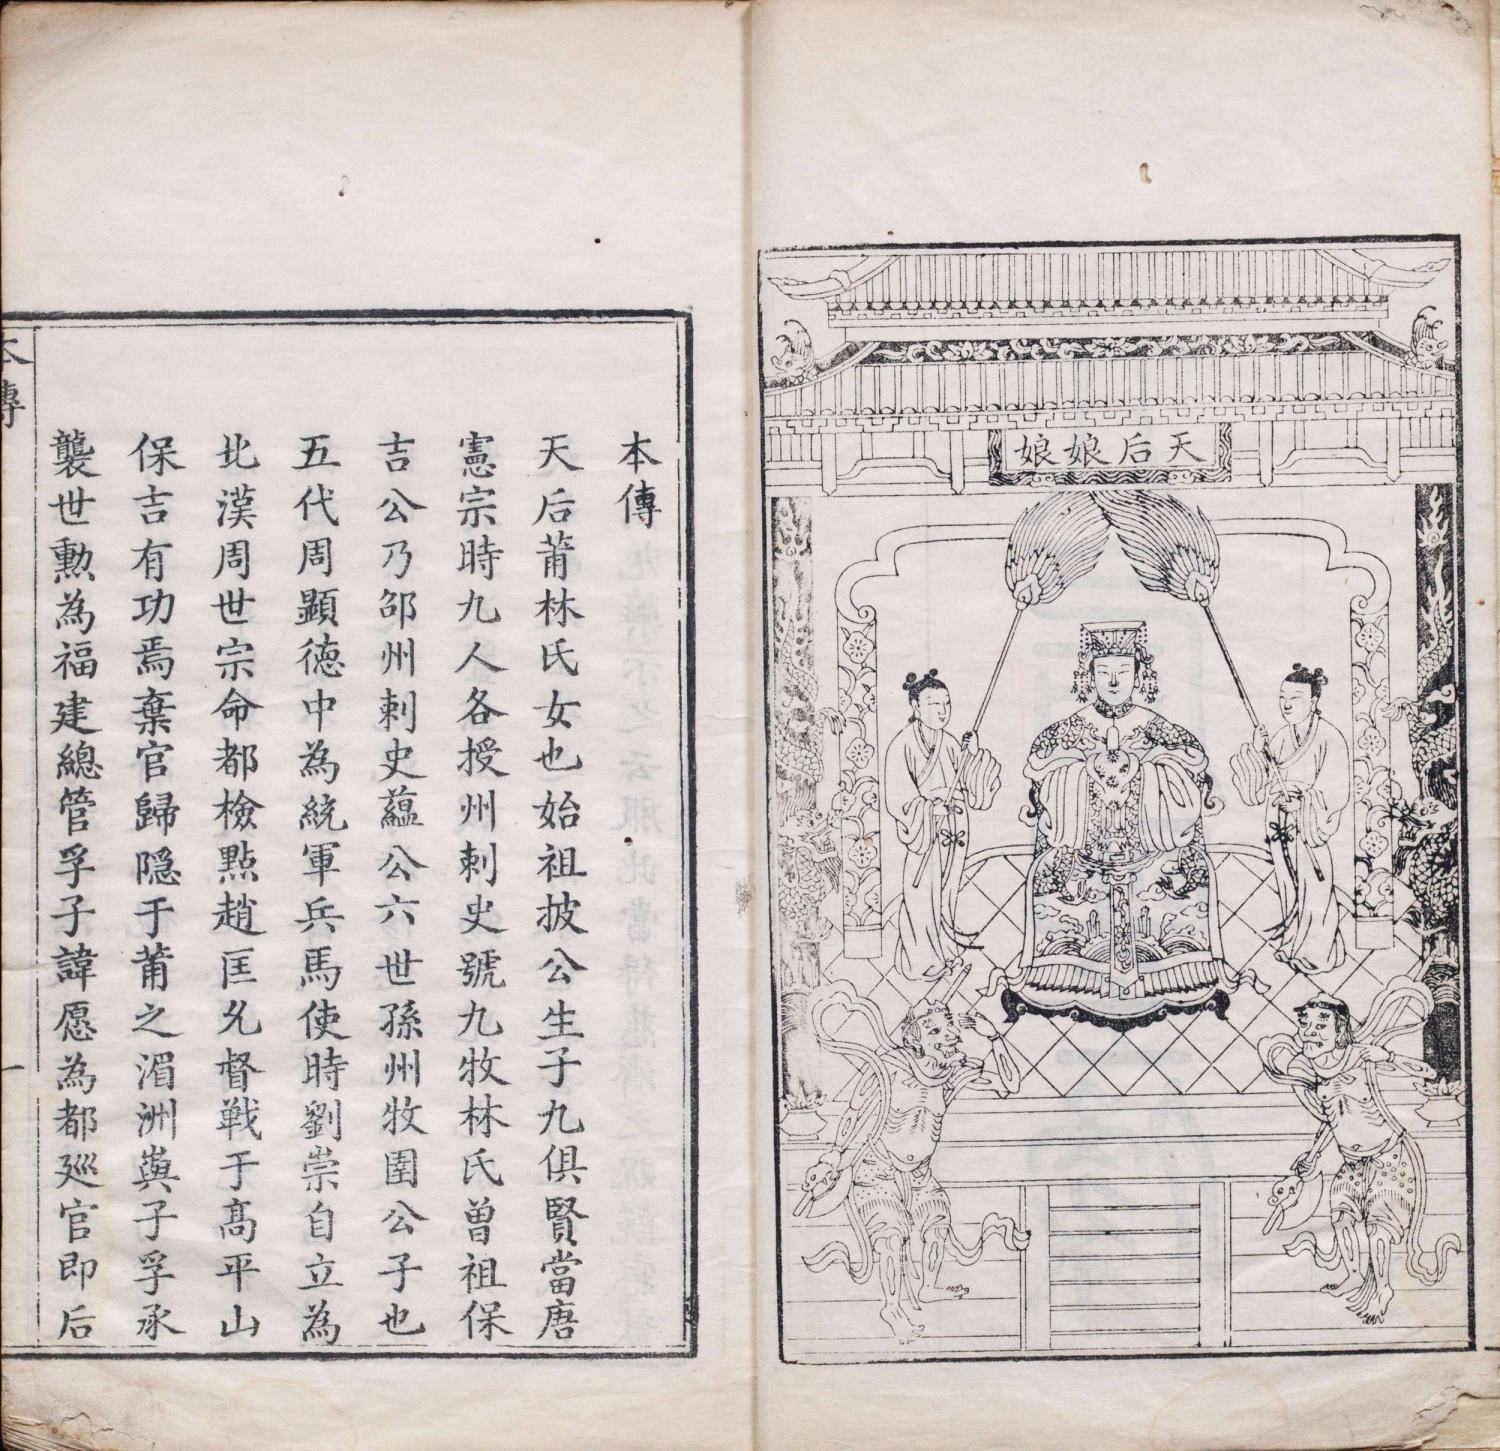 天后娘娘
本傳
天后莆林氏女也始祖披公生子九俱賢當唐
憲宗時九人各授州刺史號九牧林氏曾祖保
吉公乃邵州刺史蘊公六世孫州牧圉公子也
五代周顯德中為統軍兵馬使時劉崇自立為
北漢周世宗命都檢點趙匡胤督戰于高平山
保吉有功焉棄官歸隱于莆之湄洲與子孚承
襲世勲為福建總管孚子諱愿為都廵官即后
本傳
一